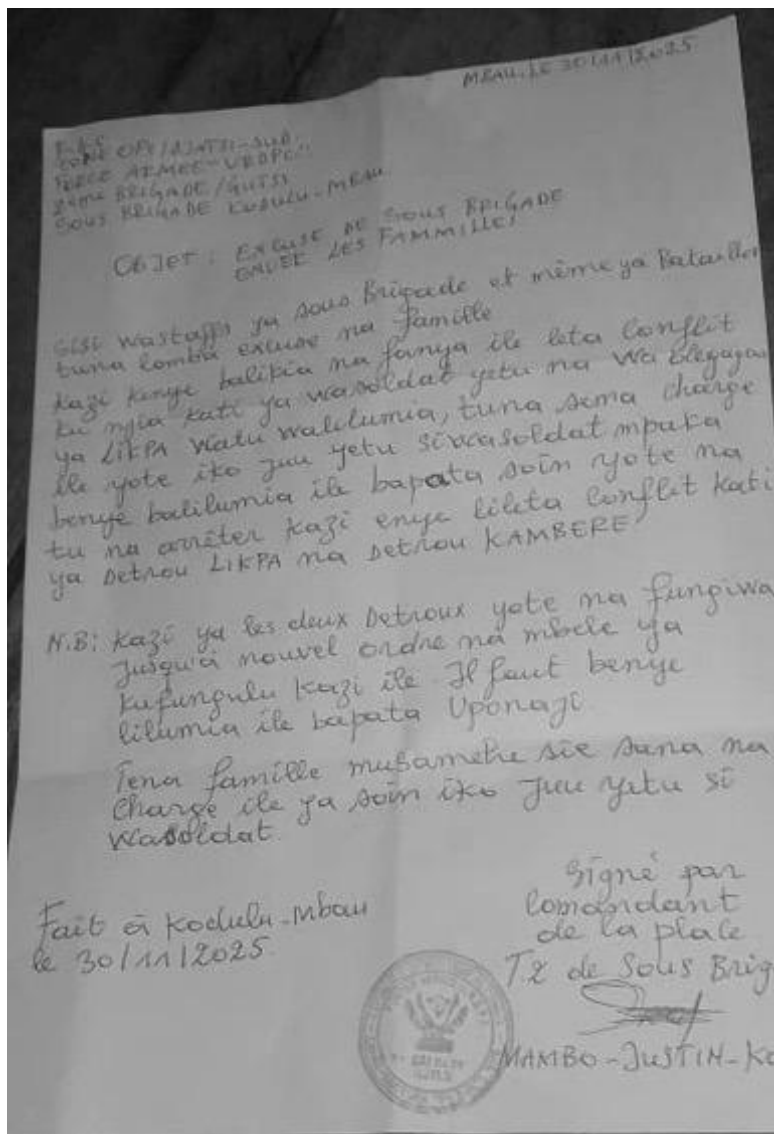 MBAU, LE 30/11/2025
ZONE OPE/ -SUD.
FORCE ARMEE-URDPC.
2ème BRIGADE/GUTSI
SOUS BRIGADE KUDULU-MBAU
Objet : EXCUSE DE SOUS BRIGADE
LES FAMMILLES
SiSi wastaffs ya sous Brigade et même ya Bataillon
tuna lomba excuse na famille
kazi kenye balikia na fanya ile leta Conflit
ku njia kati ya wasoldat yetu na wa
ya LIKPA watu walilumia, tuna sema charge
ile yote iko juu yetu siwasoldat mpaka
benye balilumia ile bapata soin yote na
tu na arrêter kazi enye lileta Conflit kati
ya Detrou LIKPA na Detrou KAMBERE
N.B: kazi ya les deux Detroux yote na fungiwa
Jusqu'à nouvel ordre na mbele ya
kufungulu kazi ile Il faut benye
lilumia ile bapata Uponaji
Tena famille musamehe sie sana na
Charge ile ya soin iko juu yetu si
wasoldat.
Fait à Kodulu-Mbau
le 30/11/2025
Signé par
Comandant
de la place
T2 de Sous Brig
MAMBO-JUSTIN-Ko